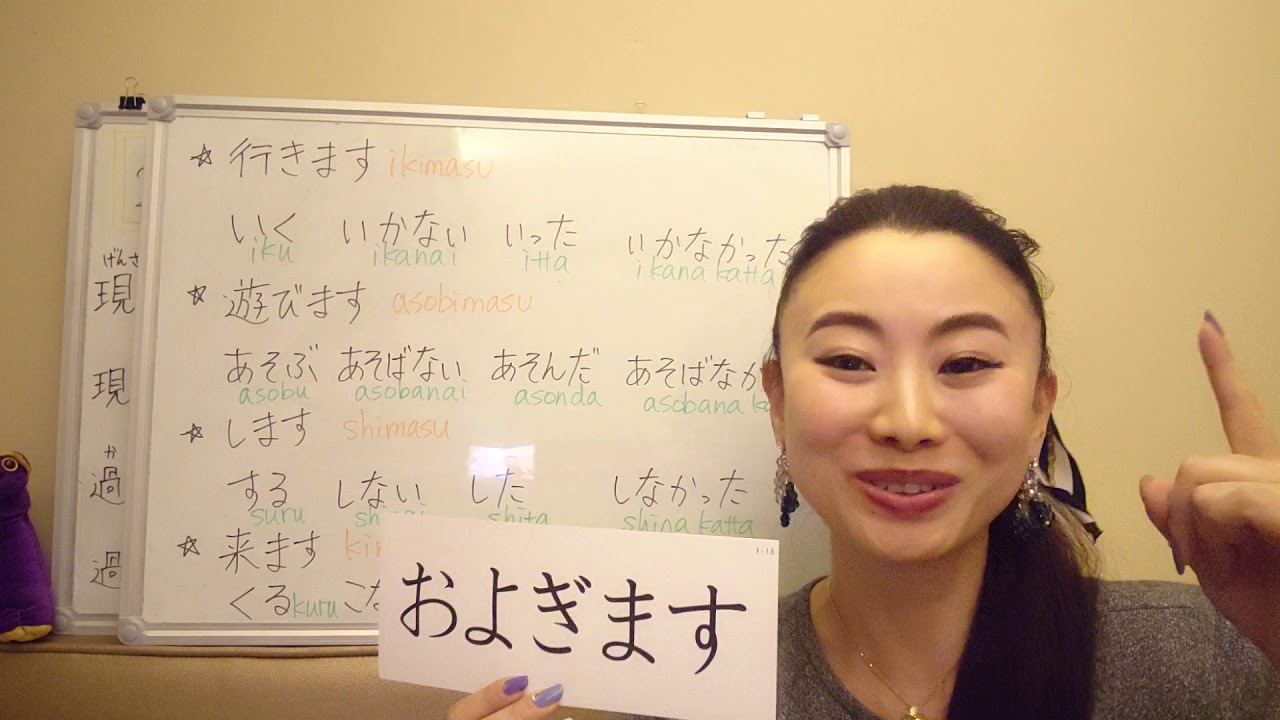 ☆ 行きます ikimasu
いく いかない いった いかなかった
iku ikanai itta ikana katta
☆ 遊びます asobimasu
あそぶ あそばない あそんだ あそばなか
asobu asobanai asonda asobana
☆ します shimasu
する しない した しなかった
suru shita shina katta
☆ 来ます
くる kuru こな
げんざ
現
現
か
過
過
1-13
およぎます